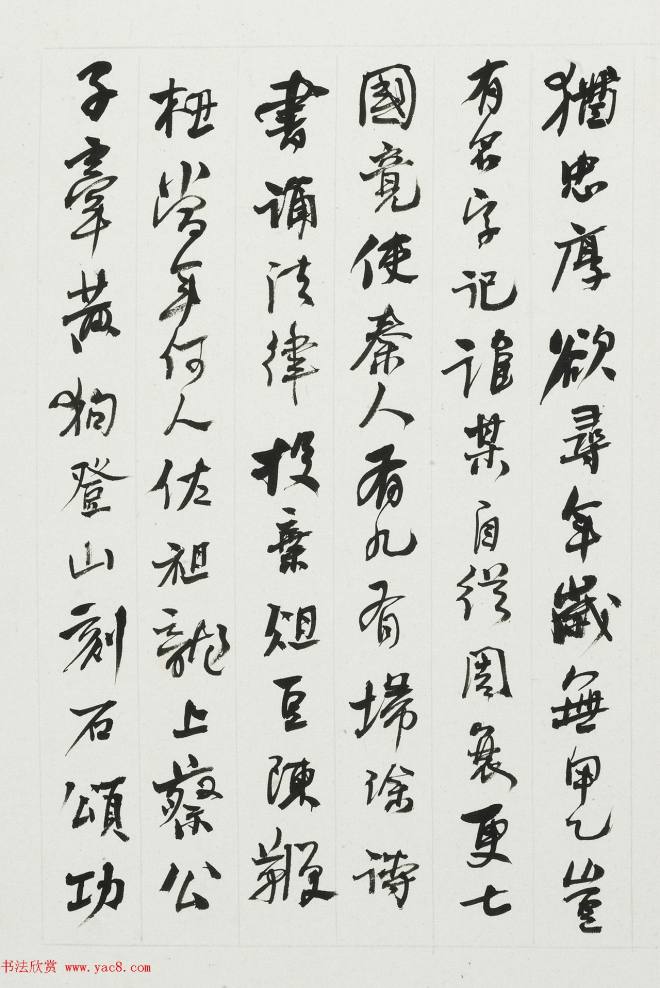 猶忠厚欲尋年歲無甲乙豈
有名字記誰某自從周衰更七
國竟使秦人有九有掃除詩
書誦法律投棄俎豆陳鞭
杻當年何人佐祖龍上蔡公
子牽黃狗登山刻石頌功
书法欣赏 www.yac8.com